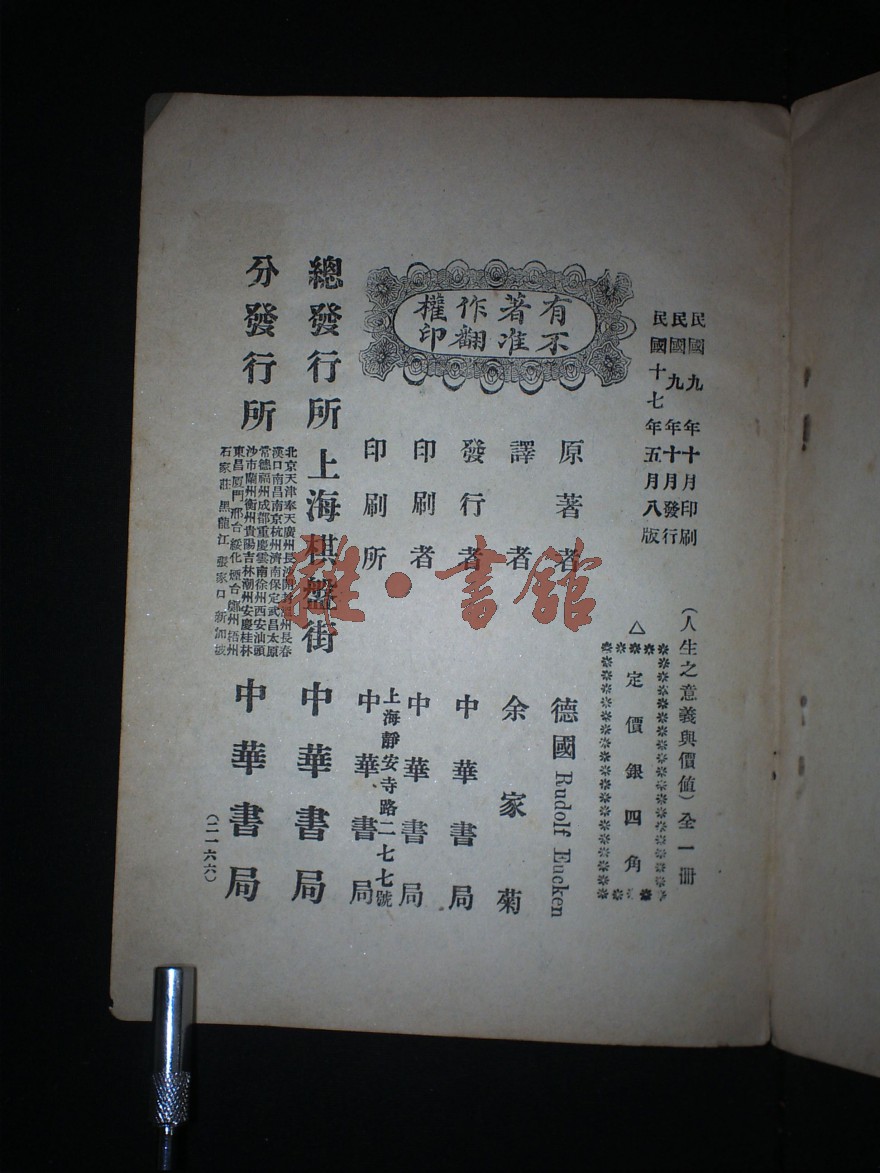 民國九年十月印刷
民國九年十月發行
民國十七年五月八版
(人生之意義與價值)全一冊
△定價銀四角
有不著准作翻權印
原著者 德國 Rudolf Eucken
譯者 余家菊
發行者 中華書局
印刷者 中華書局
上海靜安寺路二七七號
印刷所 中華書局
總發行所 上海棋盤街 中華書局
分發行所
北京天津奉天廣州長沙開封 州長春
漢口南昌南京杭州濟南保定武昌太原
常德福州成都重慶雲南徐州西安汕頭
沙市蘭州衡州貴陽吉林潮州安慶桂林
東昌廈門邢台綏化煙台鄭州梧州
石家莊黑龍江張家口新加坡
中華書局
(二一六六)
雜·書館